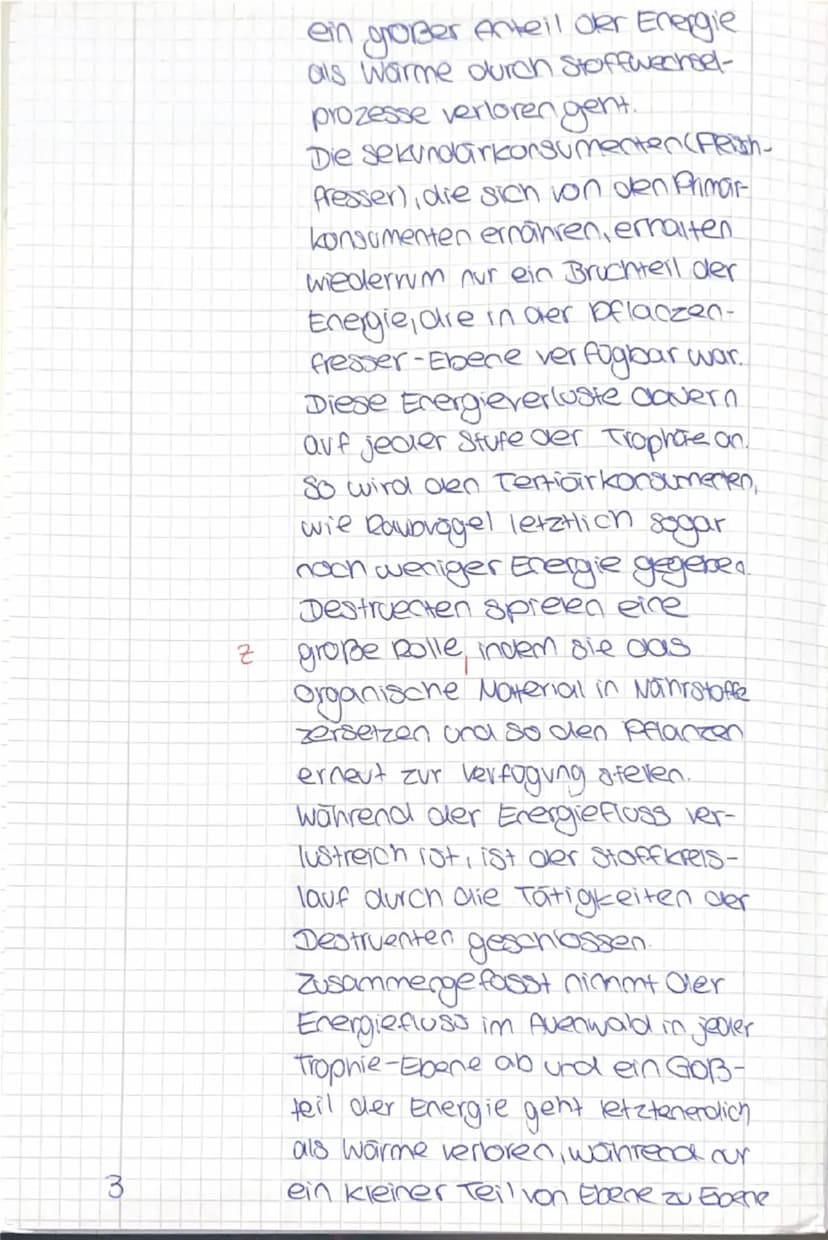 ein großer Anteil der Energie
als Wärme durch Stoffwechsel-
prozesse verloren geht.
Die Sekundärkonsumenten (Fleisch-
fresser), die sich von den Primär-
konsumenten ernähren, erhalten
wiederrum nur ein Bruchteil der
Energie, die in der Pflanzen-
fresser-Ebene verfügbar war.
Diese Energieverluste dauern
auf jeder Stufe der Trophäe an.
So wird den Tertiärkonsumenten,
wie Raubvögel letztlich sogar
noch weniger Energie gegeben.
Destruenten spielen eine
Z große Rolle, indem sie das
organische Material in Nährstoffe
zersetzen und so den Pflanzen
erneut zur Verfügung stellen.
Während der Energiefluss ver-
lustreich ist, ist der Stoffkreis-
lauf durch die Tätigkeiten der
Destruenten geschlossen.
Zusammengefasst nimmt der
Energiefluss im Auenwald in jeder
Trophie-Ebene ab und ein Goß-
teil der Energie geht letztenendlich
als Wärme verloren, während nur
3 ein kleiner Teil von Ebene zu Ebene